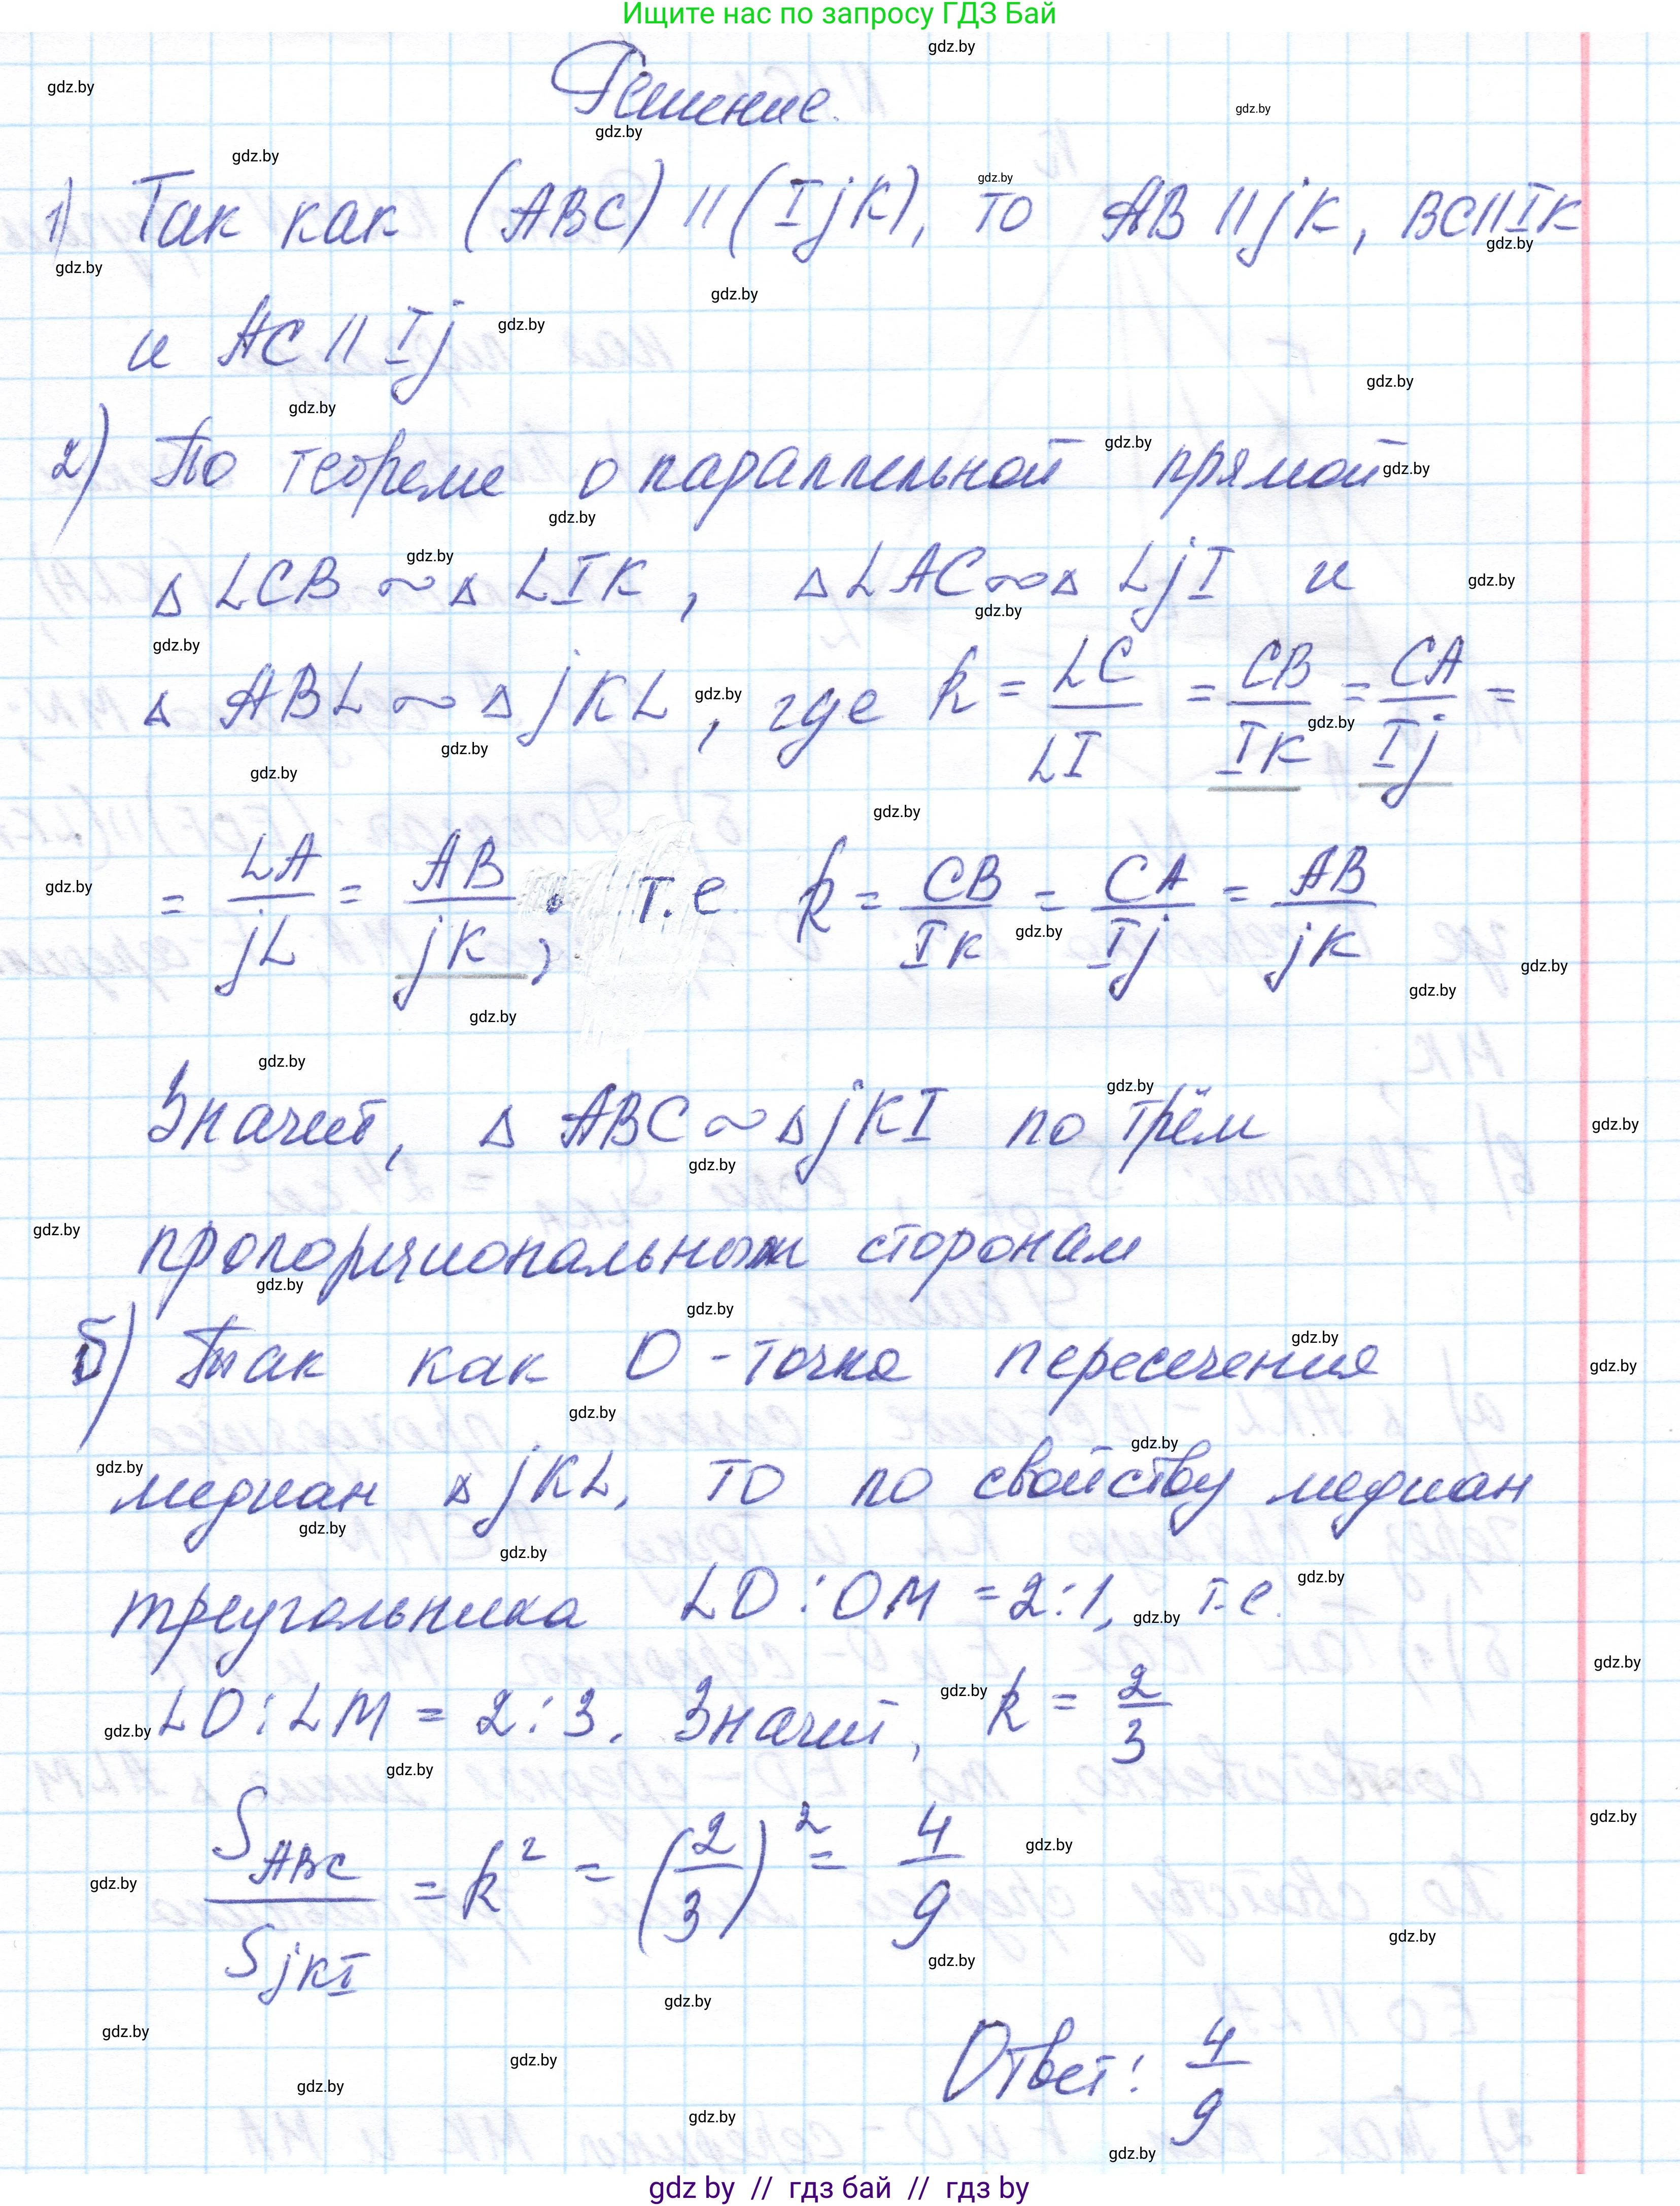 Ищите нас по запросу ГДЗ Бай
Решение.
1) Так как (ABC) || (IjK), то AB || jK, BC || IK
и AC || Ij
2) По теореме о параллельной прямой
Δ LCB ~ Δ LIK, Δ LAC ~ Δ LjI и
Δ ABL ~ Δ jKL, где k = LC/LI = CB/IK = CA/Ij =
= LA/jL = AB/jK; т.е. k = CB/IK = CA/Ij = AB/jK
Значит, Δ ABC ~ Δ jKI по трём
пропорциональным сторонам
б) Так как O - точка пересечения
медиан Δ jKL, то по свойству медиан
треугольника LO : OM = 2:1, т.е.
LO : LM = 2 : 3. Значит, k = 2/3
S ABC / S jKI = k² = (2/3)² = 4/9
Ответ: 4/9
gdz by // гдз бай // gdz by